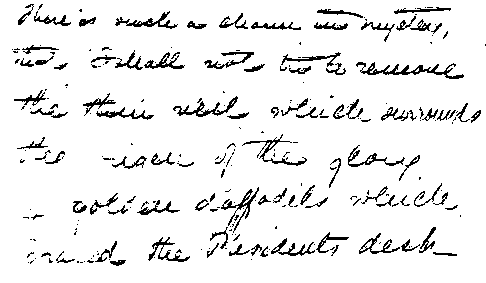 There is such a charm in mystery,
that I shall not try to remove
the thin veil which surrounds
the of the glory
golden daffodils which
the Presidents desk